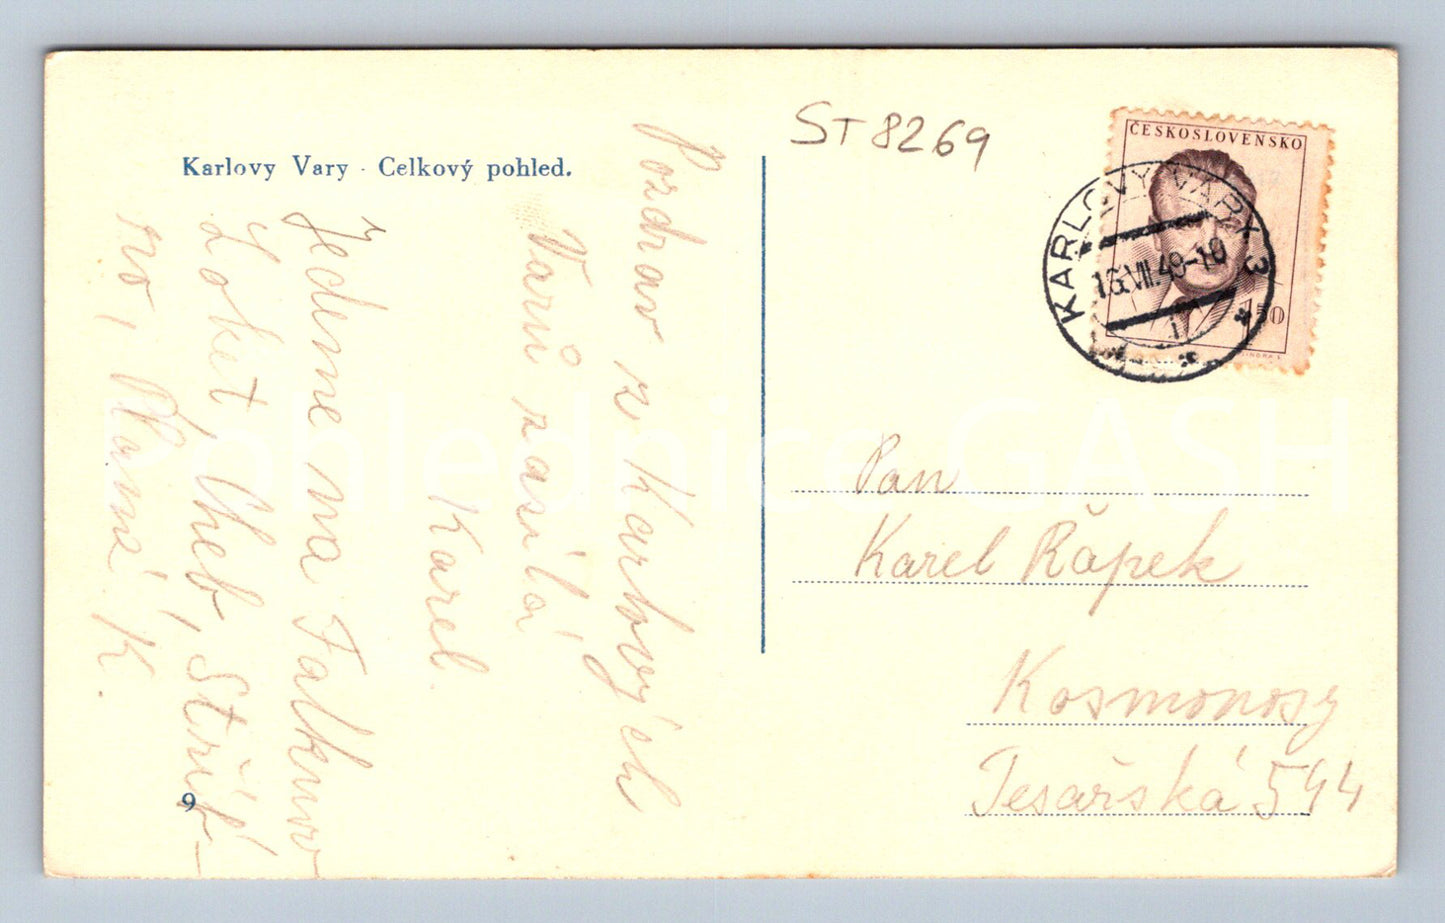 Karlovy Vary - Celkový pohled.
ST 8269
ČESKOSLOVENSKO
1.50
KARLOVY VARY 3
16.VII.49-10
Pozdrav z Karlových
Varů zasílá
Karel.
Jedeme na Falknov
Loket, Cheb, Stříb-
ro, Planá K.
Pan
Karel Řápek
Kosmonosy
Tesařská 544
9
Pohlednice GASH